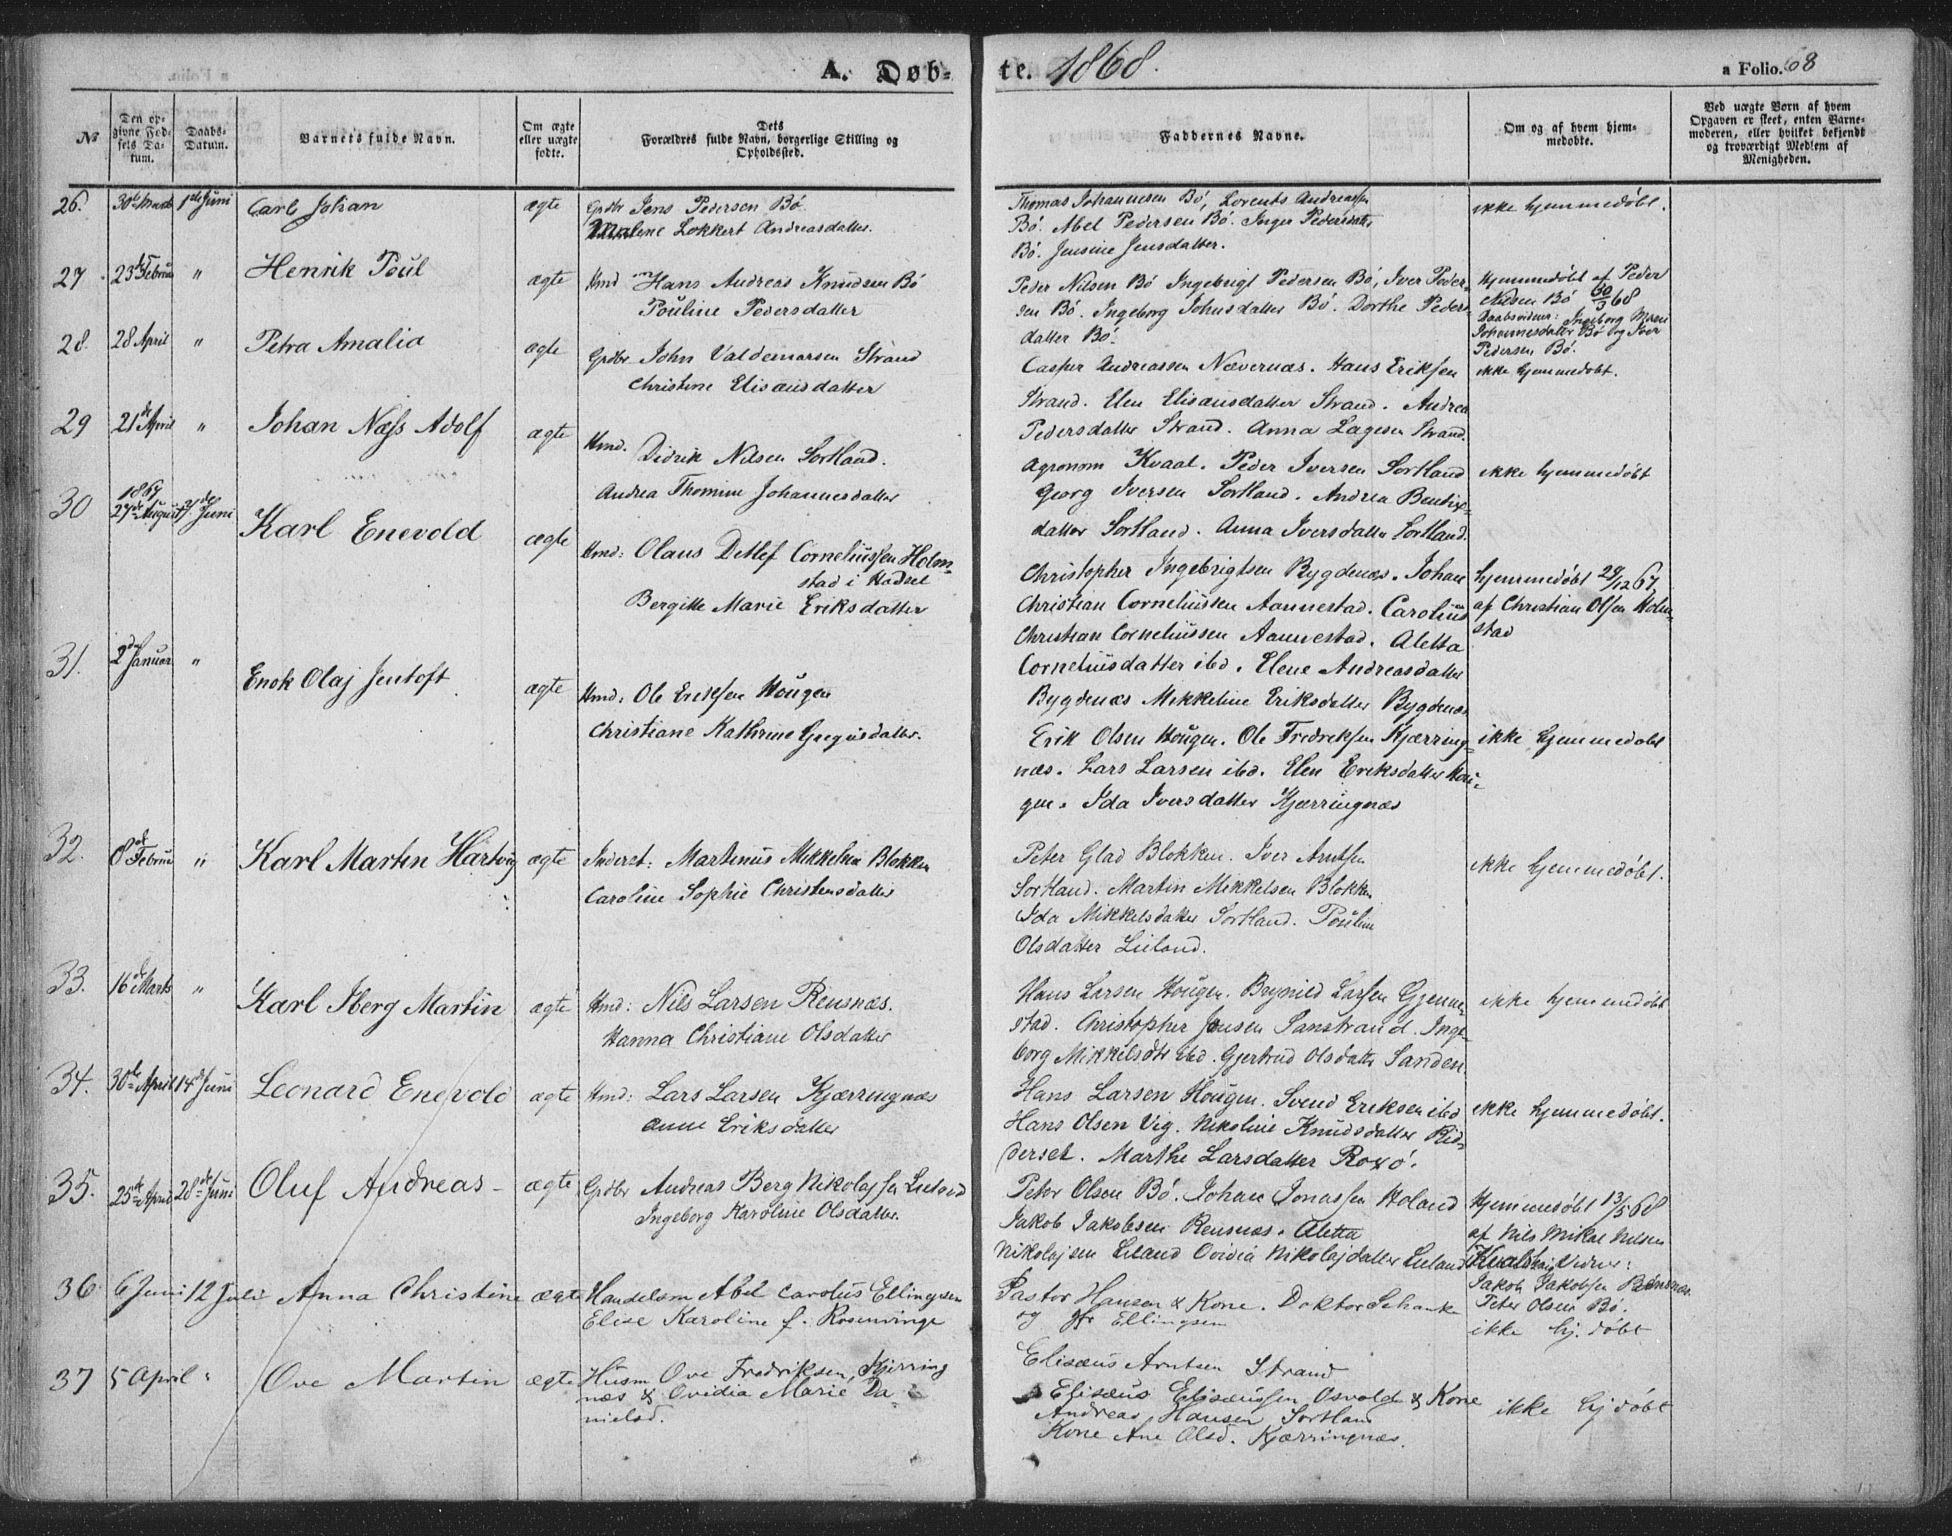 A. Døb-te. 1868.
a Folio. 68
№
Den opgivne Fødsels Datum.
Daabs-Datum.
Barnets fulde Navn.
Om ægte eller uægte fødte.
Dets Forældres fulde Navn, borgerlige Stilling og Opholdssted.
Faddernes Navne.
Om og af hvem hjemmedøbte.
Ved uægte Børn af hvem Opgaven er skeet, enten Barnemoderen, eller hvilket bekjendt og troværdigt Medlem af Menigheden.
26. 30te Marts 1ste Juni Carl Johan ægte Grdbr Jens Pedersen Bø
Malene Lokkert Andreasdatter.
Thomas Johannesen Bø, Lorents Andreassen
Bø. Abel Pedersen Bø. Inger Pedersdatter
Bø. Jensine Jensdatter.
ikke hjemmedøbt.
27. 23de Februar " Henrik Poul ægte Hmd Hans Andreas Knudsen Bø
Pouline Pedersdatter
Peder Nilsen Bø Ingebrigt Pedersen Bø, Iver Peder-
sen Bø. Ingeborg Johnsdatter Bø. Dorthe Peders-
datter Bø.
Hjemmedøbt af Peder
Nilsen Bø 30/3 68
Daabsvidner: Ingeborg Marie
Johannesdatter Bø og Iver
Pedersen Bø.
28. 28 April " Petra Amalia ægte Grdbr John Valdemarsen Strand
Christine Elisæusdatter
Casper Andreassen Nævernæs. Hans Eriksen
Strand. Elen Elisæusdatter Strand. Andrea
Pedersdatter Strand. Anna Lagesen Strand.
ikke hjemmedøbt.
29 21de April " Johan Næss Adolf ægte Hmd. Didrik Nilsen Sortland.
Andrea Thomine Johannesdatter
Agronom Kvaal. Peder Iversen Sortland
Georg Iversen Sortland. Andrea Bendix-
datter Sortland. Anna Iversdatter Sortland.
ikke hjemmedøbt
30 1867 27de August 7de Juni Karl Enevold ægte Hmd: Olaus Detlef Corneliussen Holm-
stad i Hadsel
Bergitte Marie Eriksdatter
Christopher Ingebrigtsen Bygdenæs. Johan
Christian Corneliussen Aannestad. Carolius
Christian Corneliussen Aannestad. Aletta
Corneliusdatter ibd. Elene Andreasdatter
Bygdenæs Mikkeline Eriksdatter Bygdenæs
hjemmedøbt 29/12 67
af Christian Olsen Holm-
stad
31. 2den Januar " Enok Olaj Jentoft ægte Hmd: Ole Eriksen Hougen
Christiane Kathrine Gregusdatter.
Erik Olsen Hougen. Ole Fredriksen Kjærring-
næs. Lars Larsen ibd. Elen Eriksdatter Hou-
gen. Ida Iversdatter Kjærringnæs
ikke hjemmedøbt
32. 8de Februar " Karl Martin Hartvig ægte Inderst: Martinus Mikkelsen Blokken
Caroline Sophie Christensdatter
Peter Glad Blokken. Iver Arntsen
Sortland. Martin Mikkelsen Blokken
Ida Mikkelsdatter Sortland. Pouline
Olsdatter Lieland.
ikke hjemmedøbt.
33. 16de Marts " Karl Iberg Martin ægte Hmd: Nils Larsen Rensnæs.
Hanna Christiane Olsdatter
Hans Larsen Hougen. Brynild Larsen Gjenne-
stad. Christopher Jensen Sanstrand. Inge-
borg Mikkelsdtr ibd. Gjertrud Olsdatter Sanden
ikke hjemmedøbt
34. 30te April 14de Juni Leonard Enevold ægte Hmd: Lars Larsen Kjærringnæs
Anne Eriksdatter
Hans Larsen Hougen. Svend Eriksen ibd
Hans Olsen Vig. Nikoline Knudsdatter Rid-
derset. Marthe Larsdatter Roxø.
ikke hjemmedøbt.
35. 25de April 28de Juni Oluf Andreas - ægte Grdbr Andreas Berg Nikolajsen Lieland
Ingeborg Karoline Olsdatter.
Peter Olsen Bø. Johan Jonassen Holand
Jakob Jakobsen Rensnæs. Aletta
Nikolajsen Leland Ovidia Nikolajdatter Lieland
Hjemmedøbt 13/5 68
af Nils Mikal Nilsen
Kvalshaug Vidner:
Jakob Jakobsen Rensnæs.
Peter Olsen Bø.
36. 6 Juni 12 Juli Anna Christine ægte Handelsm Abel Carolus Ellingsen
Elise Karoline f. Rosenvinge
Pastor Hansen & Kone. Doktor Schanke
og Jfr Ellingsen
ikke hj. døbt
37 5 April " Ove Martin ægte Husm Ove Fredriksen, Kjerring
næs & Ovidia Marie Da-
nielsd.
Elisæus Arntsen Strand
Elisæus Elisæussen Osvold & Kone
Andreas Hansen Sortland
Kone Ane Olsd. Kjærringnæs.
ikke hj døbt